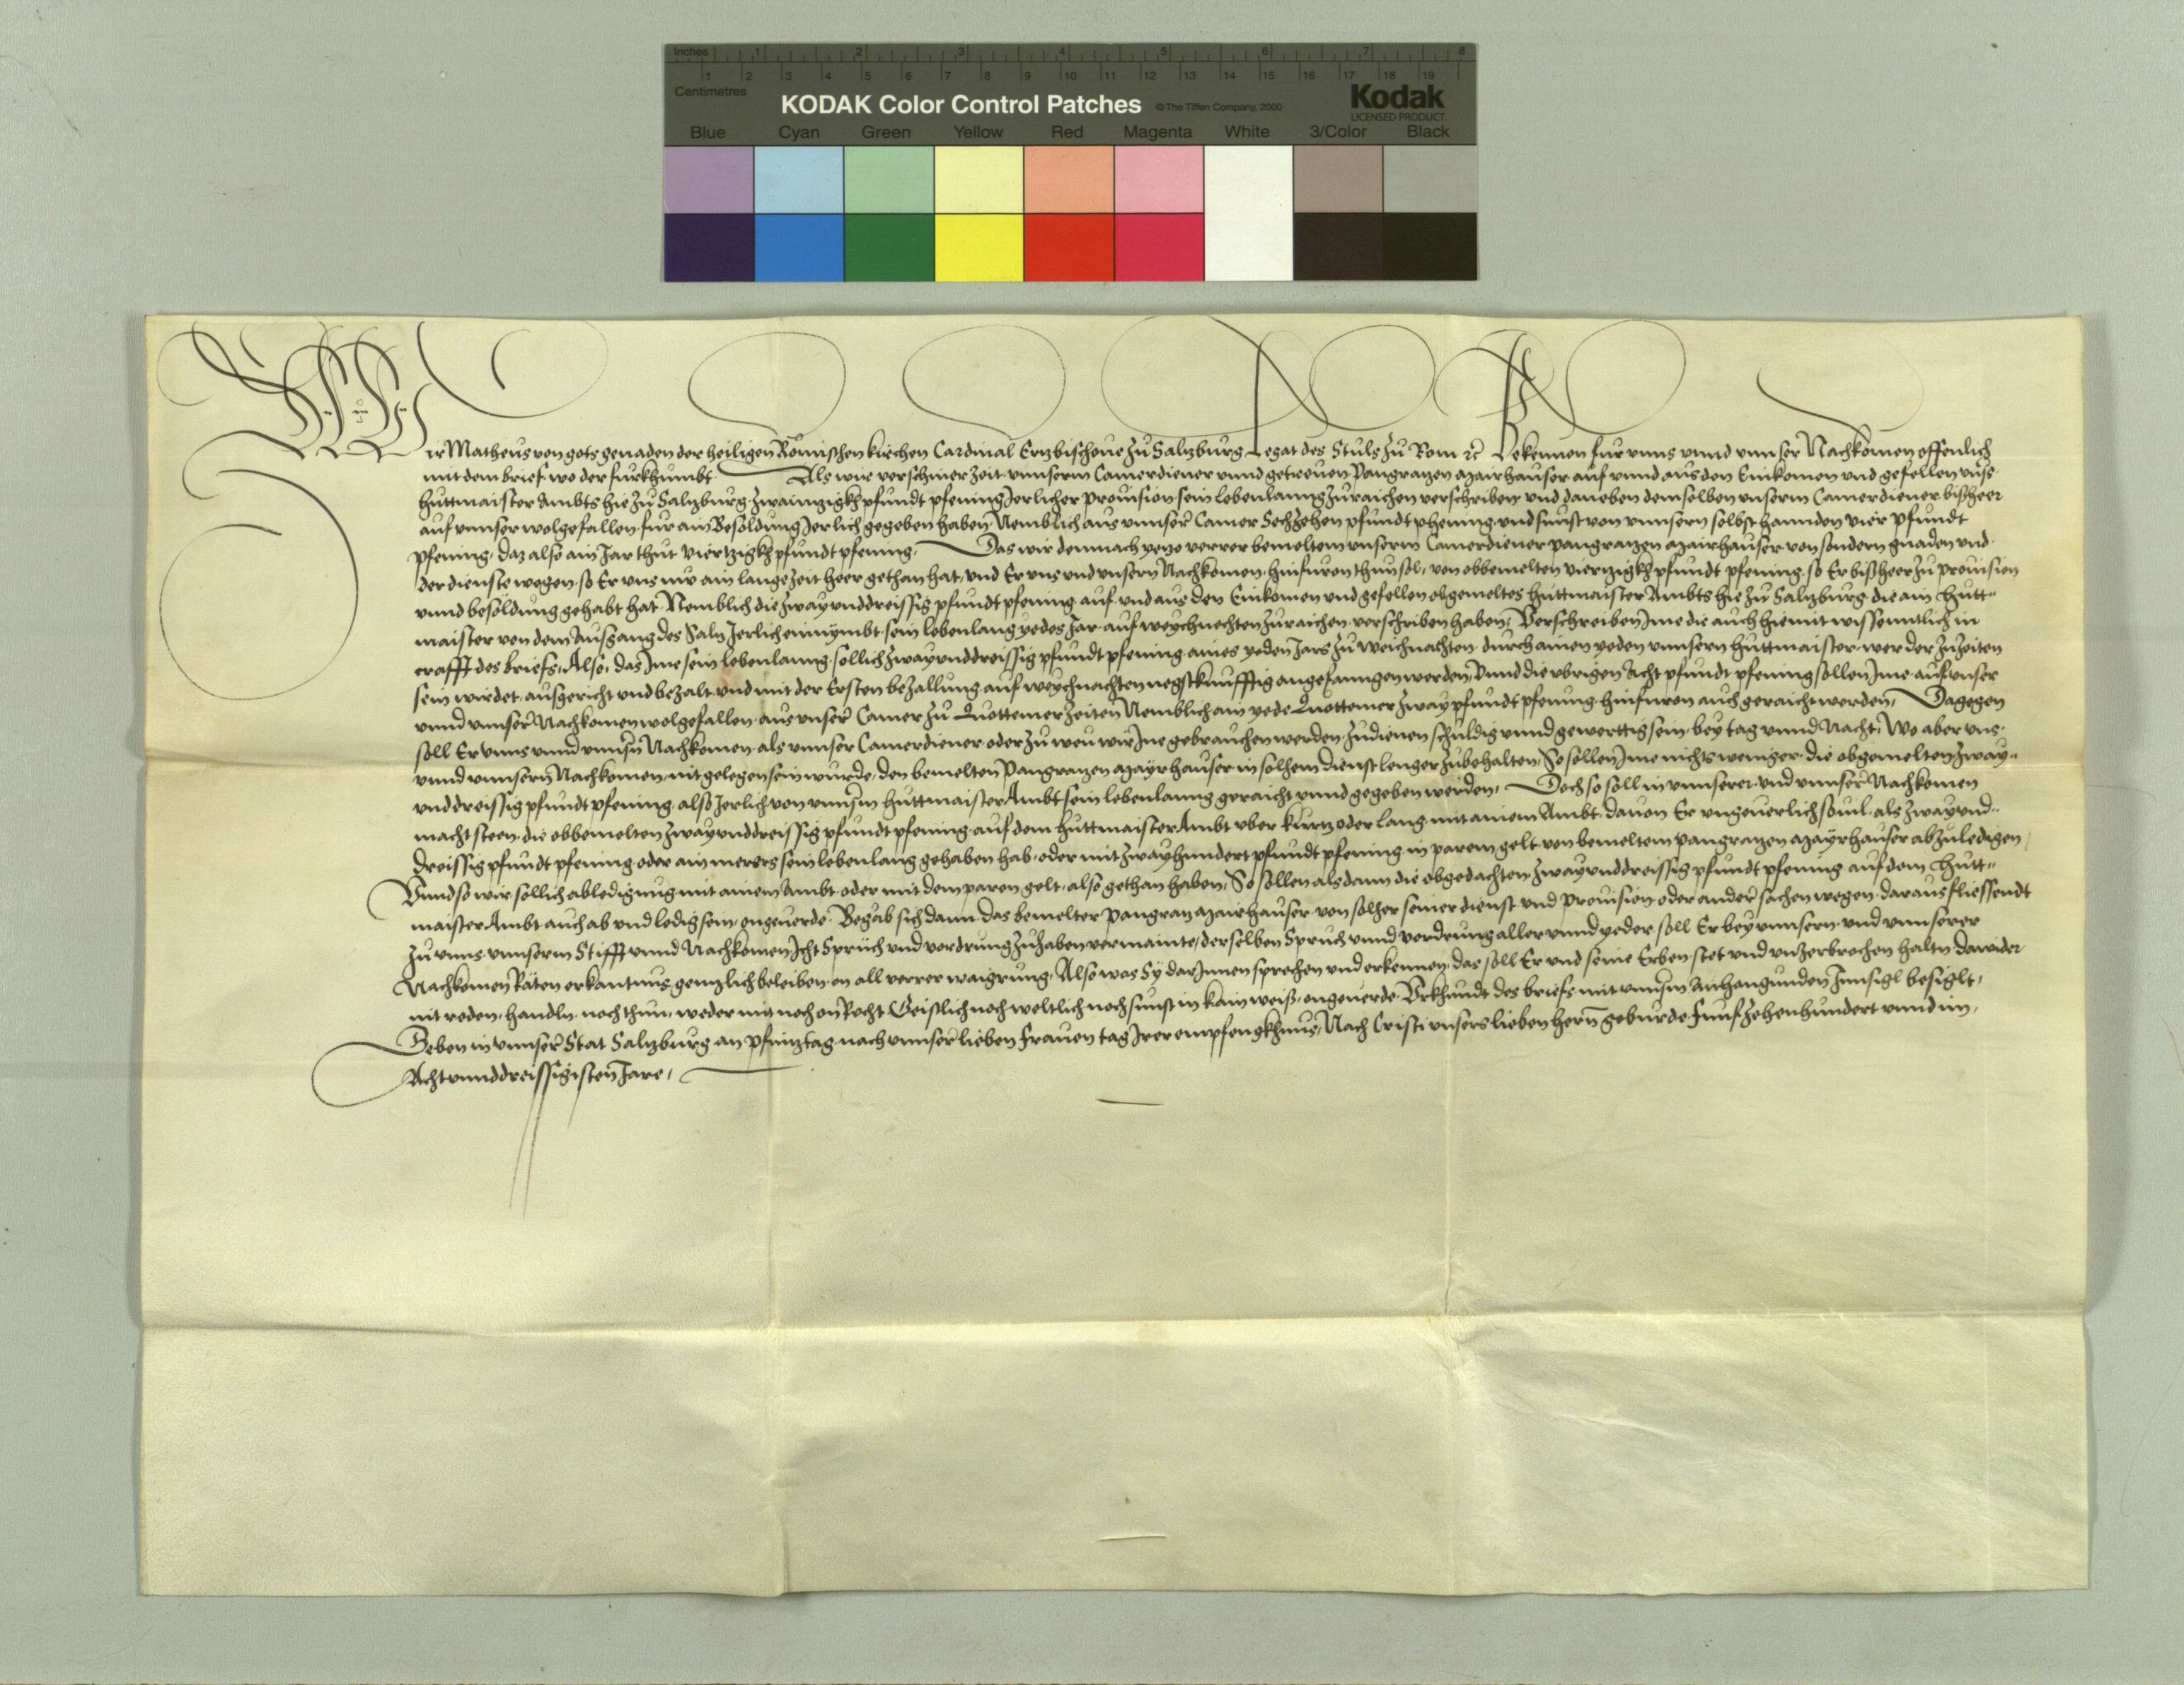 Inches 1 2 3 4 5 6 7 8
1 2 3 4 5 6 7 8 9 10 11 12 13 14 15 16 17 18 19
Centimetres
KODAK Color Control Patches © The Tiffen Company, 2000 Kodak
LICENSED PRODUCT
Blue Cyan Green Yellow Red Magenta White 3/Color Black
Wir Matheus von gots genaden der heiligen Römischen kirchen Cardinal Ertzbischoue zu Saltzburg Legat des Stuls zu Rom ꝛc Bekennen fur vnns vnnd vnnser Nachkomen offenlich
mit dem brief wo der furkhumbt Als wir verschiner zeit vnnserm Camerdiener vnnd getreuen Pangratzen Mairhauser auf vnnd aus den Einkomen vnd gefellen vnns
huttmaister Ambts hie zu Saltzburg zwaintzigkh pfundt pfening Jerlicher prouision sein lebenlanng zuraichen verschriben vnd daneben demselben vnserm Camerdiener bißheer
auf vnnser wolgefallen fur ain Besoldung Jerlich gegeben haben Nemblich aus vnnser Camer Sechzehen pfundt phening vnd sunst von vnnsern selbst hannden vier pfundt
pfening, daz also ain Jar thut viertzigkh pfundt pfening, Das wir demnach yezo verrer bemeltem vnserm Camerdiener Pangratzen Mairhauser von sondern gnaden vnd
der dienste wegen, so Er vns nu ain lange zeit heer gethan hat, vnd Er vns vnd vnsern Nachkomen, hinfuron thun sol, von obbemelten viertzigkh pfundt pfening, so Er bißheer zu prouision
vnnd besoldung gehabt hat, Nemblich die zwayunddreissig pfundt pfening auf vnd aus den Einkomen vnd gefellen obgemeltes huttmaister Ambts hie zu Saltzburg, die ain hutt-
maister von dem Ausgang des Saltz Jerlich einnymbt, sein lebenlang yedes Jar auf weychnechten zuraichen verschriben haben, Verschreiben Ime die auch hiemit wissenntlich in
crafft des briefs, Also, das Ime sein lebenlanng sollich zwayunddreissig pfundt pfening aines yeden Jars zu weichnachten durch ainen yeden vnnsern huttmaister, wer der zuzeiten
sein wirdet, ausgericht vnd bezalt, vnd mit der Ersten bezallung auf weychnachten negstkunfftig angefanngen werden, Vnnd die vbrigen Acht pfundt pfening sollen Ime auf vnser
vnnd vnnser Nachkomen wolgefallen aus vnser Camer zu Quottemer zeiten Nemblich ain yede Quottemer zway pfundt pfening hinfuron auch geraicht werden, Dagegen
soll Er vnns vnnd vnnsern Nachkomen als vnnser Camerdiener oder zu weu wir Ine gebrauchen werden, zudienen schuldig vnnd gewerttig sein, bey tag vnnd Nacht, Wo aber vns
vnnd vnnsern Nachkomen, nit gelegen sein wurde, den bemelten Pangratzen Mayrhauser in solhem dienst lenger zubehalten, So sollen Ime nichts weniger die obgemelten zway-
vnddreissig pfundt pfening also Jerlich von vnnserm huttmaister Ambt sein lebenlanng geraicht vnnd gegeben werden, Doch so soll in vnnserer vnd vnnser Nachkomen
macht steen, die obbemelten zwayunddreissig pfundt pfening auf dem huttmaister Ambt vber kurtz oder lang mit ainem Ambt, dauon Er vngeuerlich souil als zwayund-
dreissig pfundt pfening oder ain merers sein lebenlang gehaben hab, oder mit zwayhundert pfundt pfening in parem gelt von bemeltem Pangratzen Mayrhauser abzuledigen,
Vnnd so wir sollich abledigung mit ainem Ambt oder mit dem paren gelt, also gethan haben, So sollen alsdann die obgedachten zwayunddreissig pfundt pfening auf dem hutt-
maister Ambt auch ab vnd ledig sein, ongeuerde. Begab sich dann, das bemelter Pangratz Mairhauser von solher seiner dienst vnd prouision oder ander sachen wegen, daraus fliessendt
zu vnns, vnnserm Stifft vnnd Nachkomen Icht Spruch vnd vordrung zuhaben vermainte, derselben Spruch vnnd vordrung aller vnnd yeder, soll Er bey vnnsern vnd vnnserer
Nachkomen Räten erkantnus gentzlich beleiben, on all verrer waigrung, Also was Sy darJnnen sprechen vnd erkennen, das soll Er vnd seine Erben stet vnd vnzerbrochen haltn dawider
nit reden, handln, noch thun, weder mit noch on Recht, Geistlich noch weltlich noch sunst in kain weiß, ongeuerde. Vrkhundt des briefs mit vnnserm Anhangunden Innsigl besiglt,
Geben in vnnser Stat Saltzburg an Pfintztag nach vnnser lieben Frauen tag Irer empfengkhnus, Nach Cristi vnsers lieben hern geburde Funfzehenhundert vnnd im,
Achtunnddreissigisten Jare,